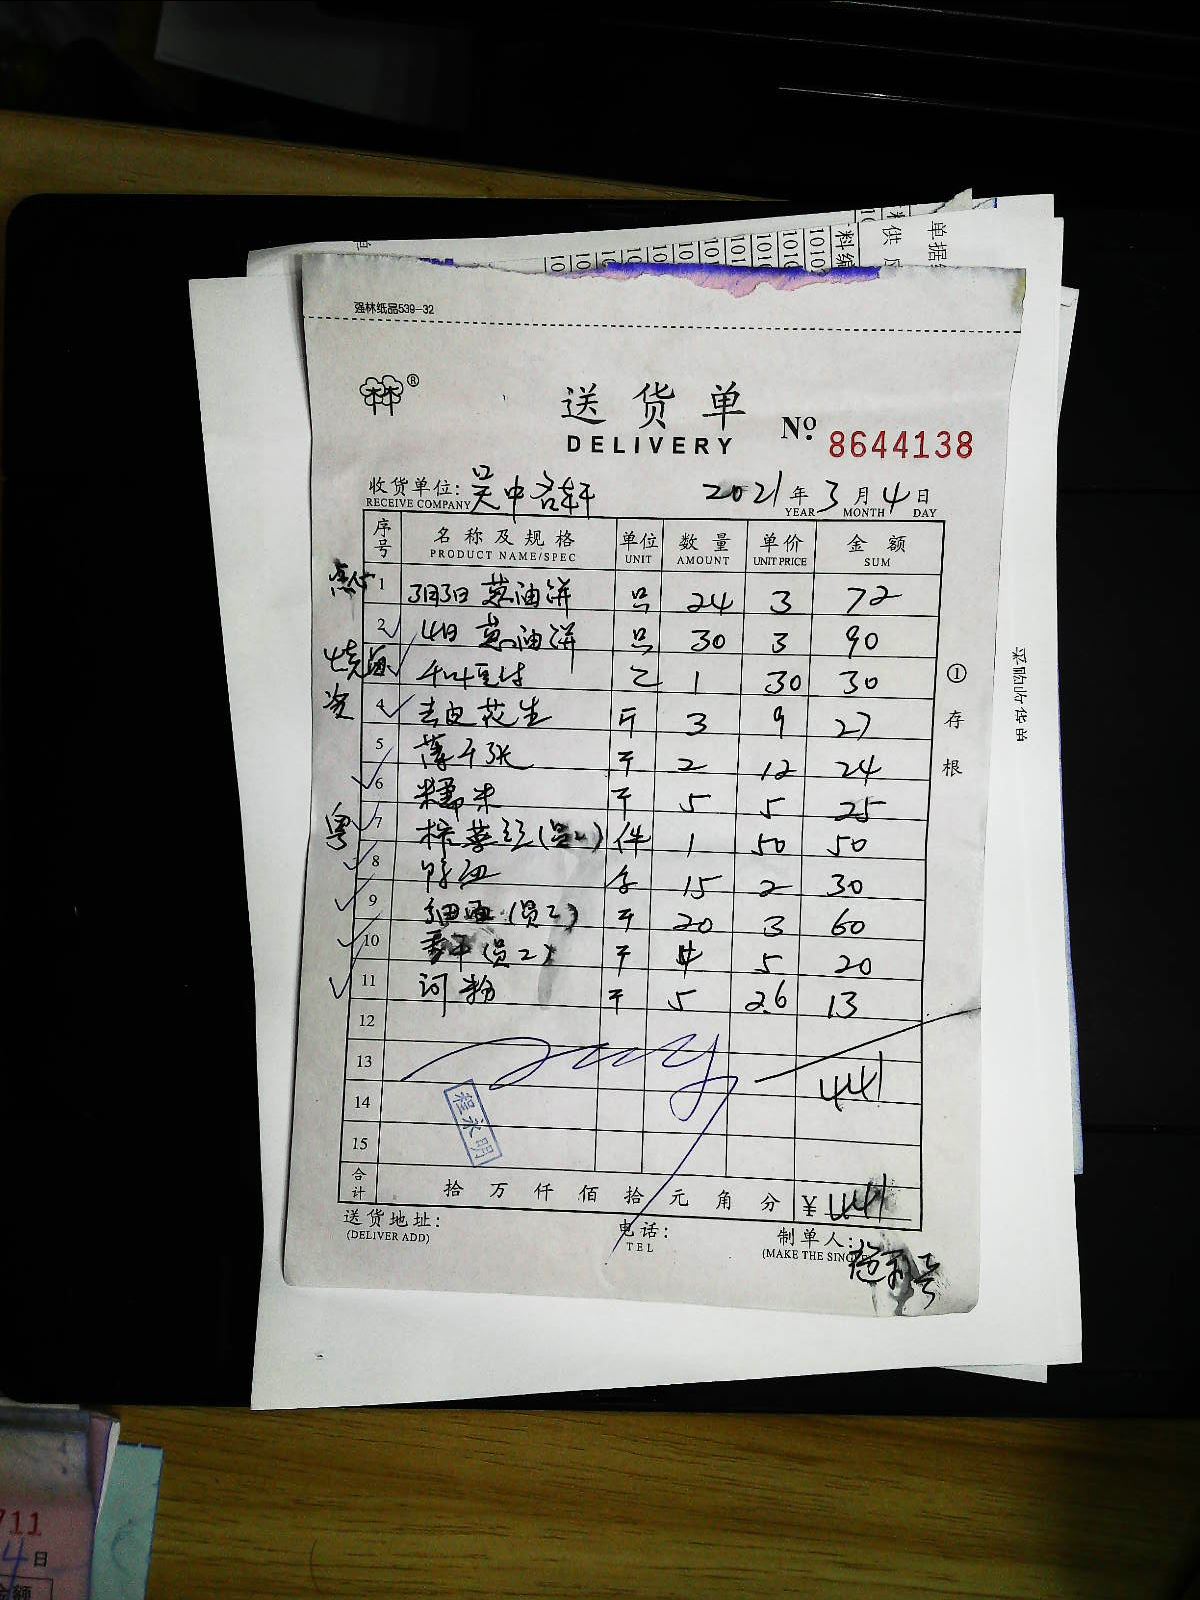 单据
供
料编
强林纸品539-32
®
送货单
DELIVERY
№ 8644138
收货单位: 吴中名轩 2021年3月4日
RECEIVE COMPANY YEAR MONTH DAY
序号 名称及规格 单位 数量 单价 金额
PRODUCT NAME/SPEC UNIT AMOUNT UNIT PRICE SUM
点心 1 3月3日 葱油饼 只 24 3 72
2 4日 葱油饼 只 30 3 90
1 30 30
4 去皮花生 斤 3 9 27
5 薄千张 斤 2 12 24
6 糯米 斤 5 5 25
粤 7 榨菜丝(员工) 件 1 50 50
8 鸭血 15 2 30
9 细面(员工) 斤 20 3 60
10 (员工) 斤 4 5 20
11 河粉 斤 5 2.6 13
12
13 441
14
15
程永明
合计 拾 万 仟 佰 拾 元 角 分 ¥ 441
送货地址: 电话: 制单人:
(DELIVER ADD) TEL (MAKE THE SINGLE
①存根
采购收货单
711
4日
金额